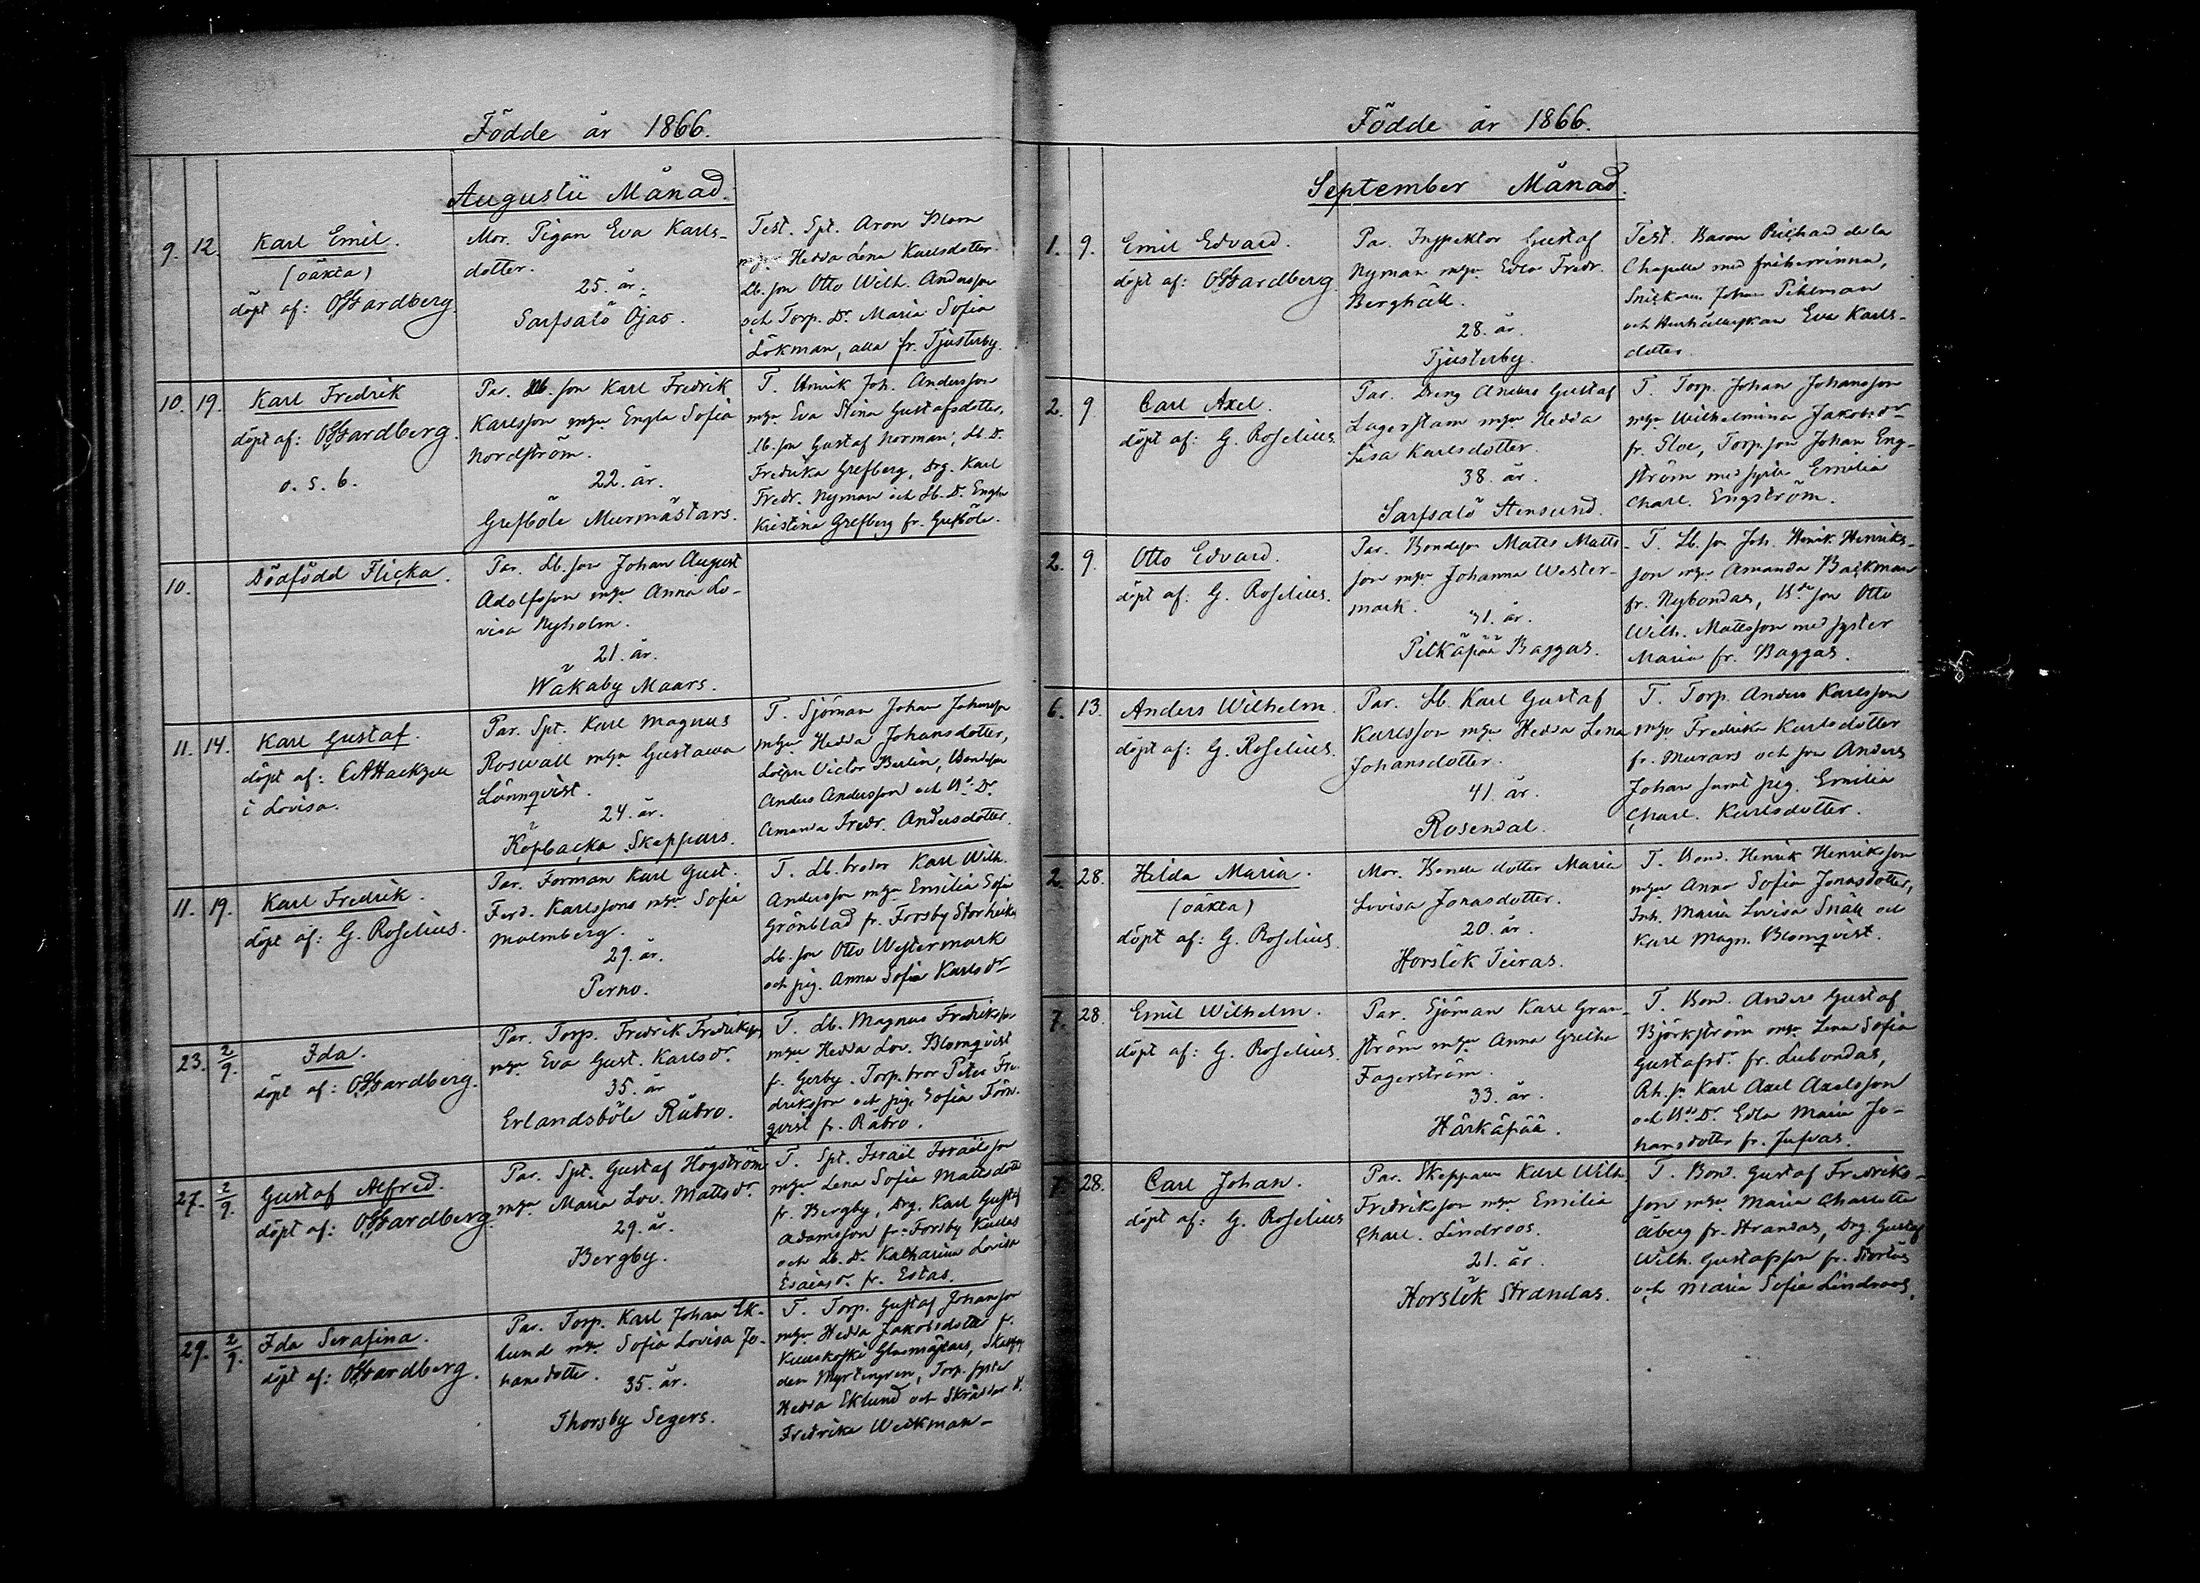 Födde år 1866.
Augustii Månad.
9. 12. Karl Emil.
(oäkta)
döpt af: OHardberg.
Mor. Pigan Eva Karls-
dotter.
25. år.
Sarfsalö Öjas.
Test. Spt. Aron Blom
mh Hedda Lena Karlsdotter.
Lb. son Otto Wilh. Andersson
och Torp. Dr. Maria Sofia
Lökman, alla fr. Tjusterby.
10. 19. Karl Fredrik
döpt af: OHardberg.
o. s. b.
Par. Lb. son Karl Fredrik
Karlsson m Engla Sofia
Nordström.
22. år.
Grefböle Murmästars.
T. Joh. Andersson
Eva Stina Gustafsdotter,
Lb. son Gustaf Norman, Lb. D.
Fredrika Grefberg, Drg. Karl
Fredr. Nyman och Lb. D. Engla
Kristina Grefberg fr. Grefböle.
10. Dödfödd Flicka.
Par. Lb. son Johan August
Adolfsson Anna Lo-
visa Nyholm.
21. år.
Wåkaby Maars.
11. 14. Karl Gustaf.
döpt af: CAHackzell
i Lovisa.
Par. Spt. Karl Magnus
Roswall Gustawa
Lönnqvist.
24. år.
Köpbacka Skeppars.
T. Sjöman Johan Johansson
Hedda Johansdotter,
Victor Berlin, Bondeson
Anders Andersson och Bd. Dr.
Amanda Fredr. Andersdotter.
11. 19. Karl Fredrik.
döpt af: G. Roselius.
Par. Forman Karl Gust.
Ferd. Karlssons Sofia
Malmberg.
29. år.
Perno.
T. Lb. broder Karl Wilh.
Andersson Emilia Sofia
Grönblad fr. Forsby Storheikas
Lb. son Otto Westermark
och pig. Anna Sofia Karlsdr
23. 2/9. Ida.
döpt af: OHardberg.
Par. Torp. Fredrik Fredriksson
Eva Gust. Karlsdr.
35. år
Erlandsböle Råbro.
T. Lb. Magnus Fredriksson
Hedda Lov. Blomqvist
fr. Gerby. Torp. bror Peter Fre-
driksson och pig. Sofia Törn-
qvist fr. Råbro.
27. 2/9. Gustaf Alfred.
döpt af: OHardberg.
Par. Spt. Gustaf Högström
Maria Lov. Mattsdr.
29. år.
Bergby.
T. Spt. Israel Israelsson
Lena Sofia Mattsdotter
fr. Bergby, Drg. Karl Gustaf
Adamsson fr. Forsby Kullas
och Lb. D. Katharina Lovisa
Esaiasdr. fr. Estas.
29. 2/9. Ida Serafina.
döpt af: OHardberg.
Par. Torp. Karl Johan Ek-
lund Sofia Lovisa Jo-
hansdotter.
35. år.
Thorsby Segers.
T. Torp. Gustaf Johansson
Hedda Jakobsdotter fr.
Kuuskoski Glasmästars,
den Myrtengren, Torp. syster
Hedda Eklund och Skräddar D.
Fredrika Weckman-
Födde år 1866.
September Månad.
1. 9. Emil Edvard.
döpt af: OHardberg.
Par. Inspektor Gustaf
Nyman Edla Fredr.
Berghäll.
28. år.
Tjusterby.
Test. Baron Richad de la
Chapelle med friherrinna,
Snickaren Johan Pihlman
och Hushållerskan Eva Karls-
dotter.
2. 9. Carl Axel.
döpt af: G. Roselius.
Par. Dräng Anders Gustaf
Lagerstam Hedda
Lisa Karlsdotter.
38. år.
Sarfsalö Stensund.
T. Torp. Johan Johansson
Wilhelmina Jakobsdr
fr. Sloe, Torp. son Johan Eng-
ström med syster Emilia
Charl. Engström.
2. 9. Otto Edvard.
döpt af: G. Roselius.
Par. Bondeson Matts Matts-
son Johanna Wester-
mark.
31. år.
Pitkäpää Baggas.
T. Lb. son Joh. Henrik Henriks-
son Amanda Backman
fr. Nybondas, Bde son Otto
Wilh. Mattsson med syster
Maria fr. Baggas.
6. 13. Anders Wilhelm.
döpt af: G. Roselius.
Par. Lb. Karl Gustaf
Karlsson Hedda Lena
Johansdotter.
41. år.
Rosendal.
T. Torp. Anders Karlsson
Fredrika Karlsdotter
fr. Murars och son Anders
Johan samt pig. Emilia
Charl. Karlsdotter.
2. 28. Hilda Maria.
(oäkta)
döpt af: G. Roselius.
Mor. Bonde dotter Maria
Lovisa Jonasdotter.
20. år.
Horslök Teiras.
T. Bond. Henrik Henriksson
Anna Sofia Jonasdotter,
Inh. Maria Lovisa Snäll och
Karl Magn. Blomqvist.
7. 28. Emil Wilhelm.
döpt af: G. Roselius.
Par. Sjöman Karl Gran-
ström Anna Gretha
Fagerström.
33. år.
Härkäpää.
T. Bond. Anders Gustaf
Björkström Lena Sofia
Gustafsdr. fr. Lubondas,
Karl Axel Axelsson
och Bds. Dr. Edla Maria Jo-
hansdotter fr. Jufvas.
7. 28. Carl Johan.
döpt af: G. Roselius
Par. Skepparen Karl Wilh.
Fredriksson Emilia
Charl. Lindroos.
21. år.
Horslök Strandas.
T. Bond. Gustaf Fredriks-
son Maria Charlotta
Åberg fr. Strandas, Drg. Gustaf
Wilh. Gustafsson fr.
och Maria Sofia Lindroos.